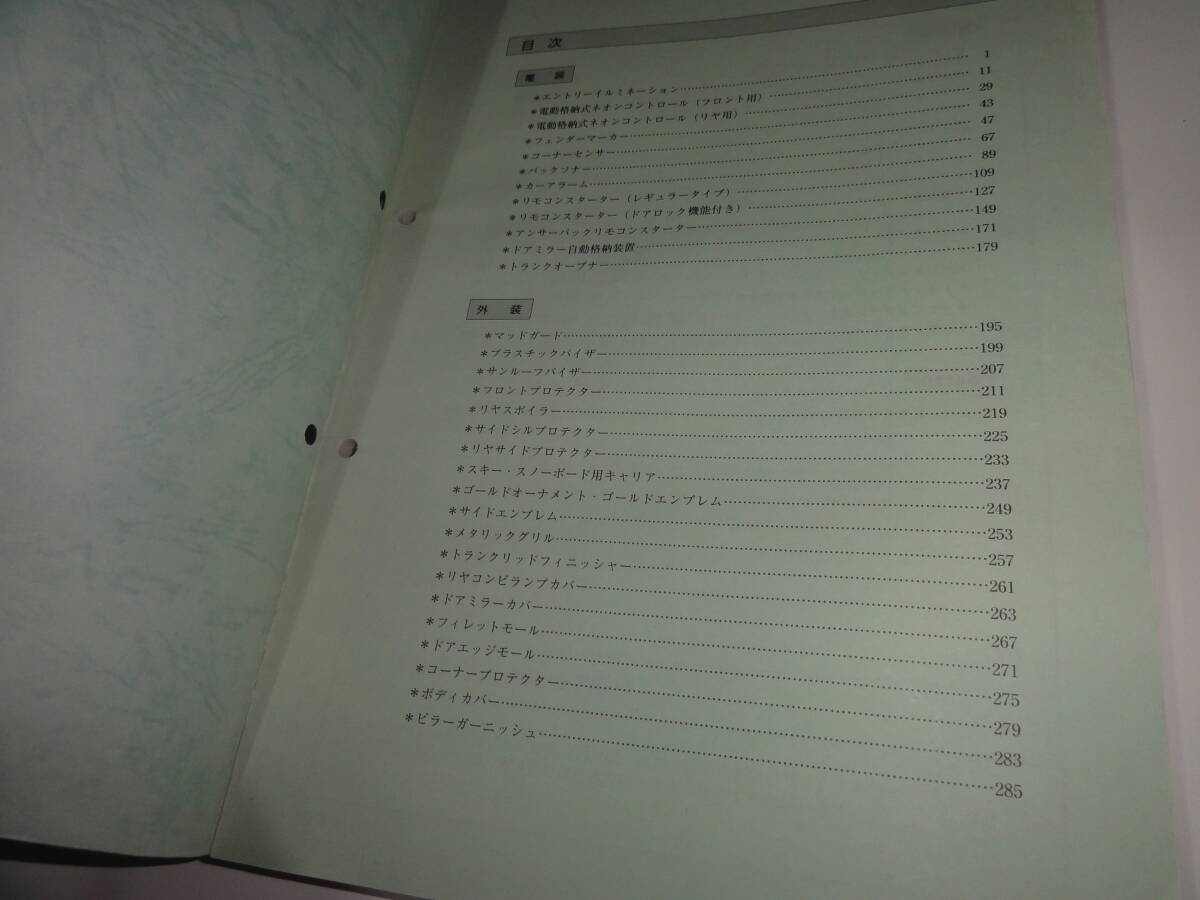 目 次
電 装
＊エントリーイルミネーション 1
＊電動格納式ネオンコントロール（フロント用） 11
＊電動格納式ネオンコントロール（リヤ用） 29
＊フェンダーマーカー 43
＊コーナーセンサー 47
＊バックソナー 67
＊カーアラーム 89
＊リモコンスターター（レギュラータイプ） 109
＊リモコンスターター（ドアロック機能付き） 127
＊アンサーバックリモコンスターター 149
＊ドアミラー自動格納装置 171
＊トランクオープナー 179
外 装
＊マッドガード 195
＊プラスチックバイザー 199
＊サンルーフバイザー 207
＊フロントプロテクター 211
＊リヤスポイラー 219
＊サイドシルプロテクター 225
＊リヤサイドプロテクター 233
＊スキー・スノーボード用キャリア 237
＊ゴールドオーナメント・ゴールドエンブレム 249
＊サイドエンブレム 253
＊メタリックグリル 257
＊トランクリッドフィニッシャー 261
＊リヤコンビランプカバー 263
＊ドアミラーカバー 267
＊フィレットモール 271
＊ドアエッジモール 275
＊コーナープロテクター 279
＊ボディカバー 283
＊ピラーガーニッシュ 285